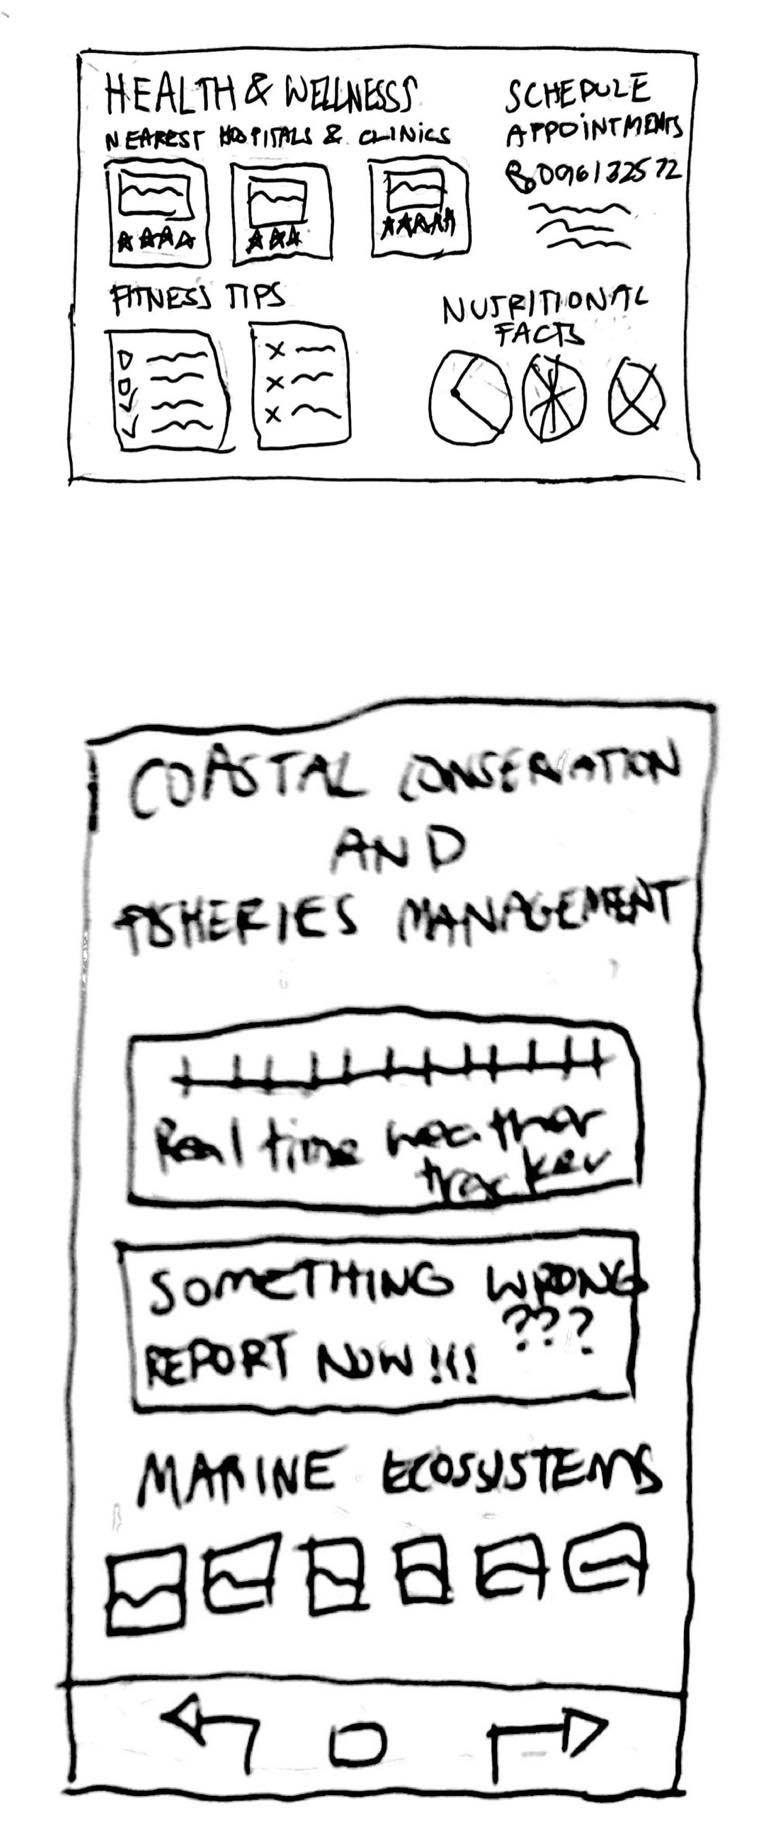 HEALTH & WELLNESS
NEAREST HOSPITALS & CLINICS
SCHEDULE
APPOINTMENTS
096132572
FITNESS TIPS
NUTRITIONAL
FACTS
COASTAL CONSERVATION
AND
FISHERIES MANAGEMENT
Real time weather
tracker
SOMETHING WRONG
???
REPORT NOW!!!
MARINE ECOSYSTEMS